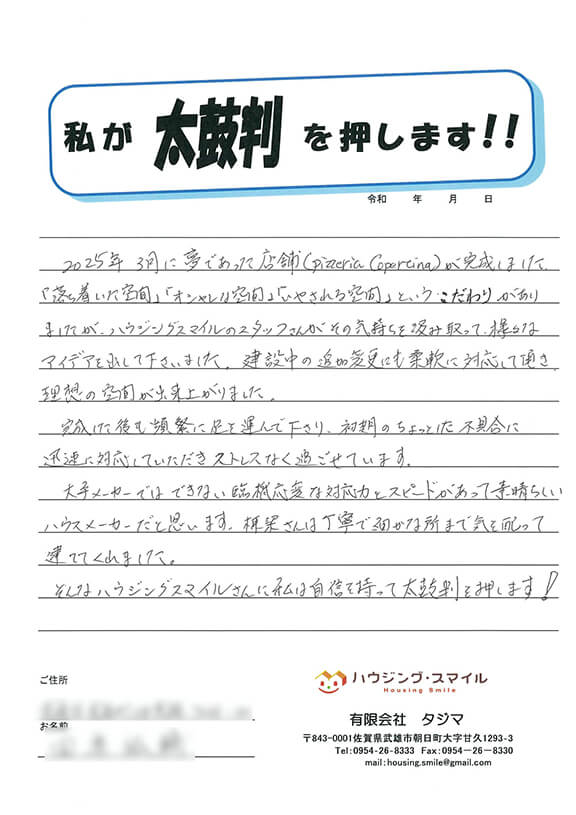 私が 太鼓判 を押します!!
令和　年　月　日
2025年 3月に夢であった店舗(pizzeria Copertina)が完成しました。
「落ち着いた空間」「オシャレな空間」「いやされる空間」というこだわりがあり
ましたが、ハウジングスマイルのスタッフさんがその気持ちを汲み取って、様々な
アイデアを出して下さいました。建設中の追加変更にも柔軟に対応して頂き、
理想の空間が出来上がりました。
完成した後も頻繁に足を運んで下さり、初期のちょっとした不具合に
迅速に対応していただきストレスなく過ごせています。
大手メーカーではできない臨機応変な対応力とスピードがあって素晴らしい
ハウスメーカーだと思います。棟梁さんは丁寧で細かな所まで気を配って
建ててくれました。
そんなハウジングスマイルさんに私は自信を持って太鼓判を押します!
ご住所
お名前
ハウジング・スマイル
Housing Smile
有限会社　タジマ
〒843-0001佐賀県武雄市朝日町大字甘久1293-3
Tel:0954-26-8333　Fax:0954-26-8330
mail:housing.smile@gmail.com